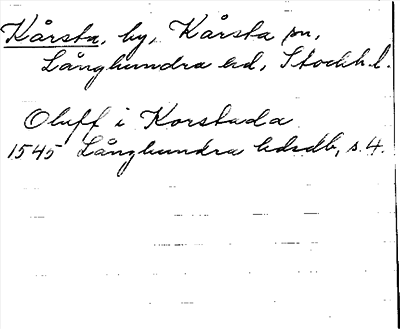 Kårsta, by, Kårsta sn,
Långhundra hd, Stockh. l.
Oluff i Korstada
1545 Långhundra hdsdb, s. 4.